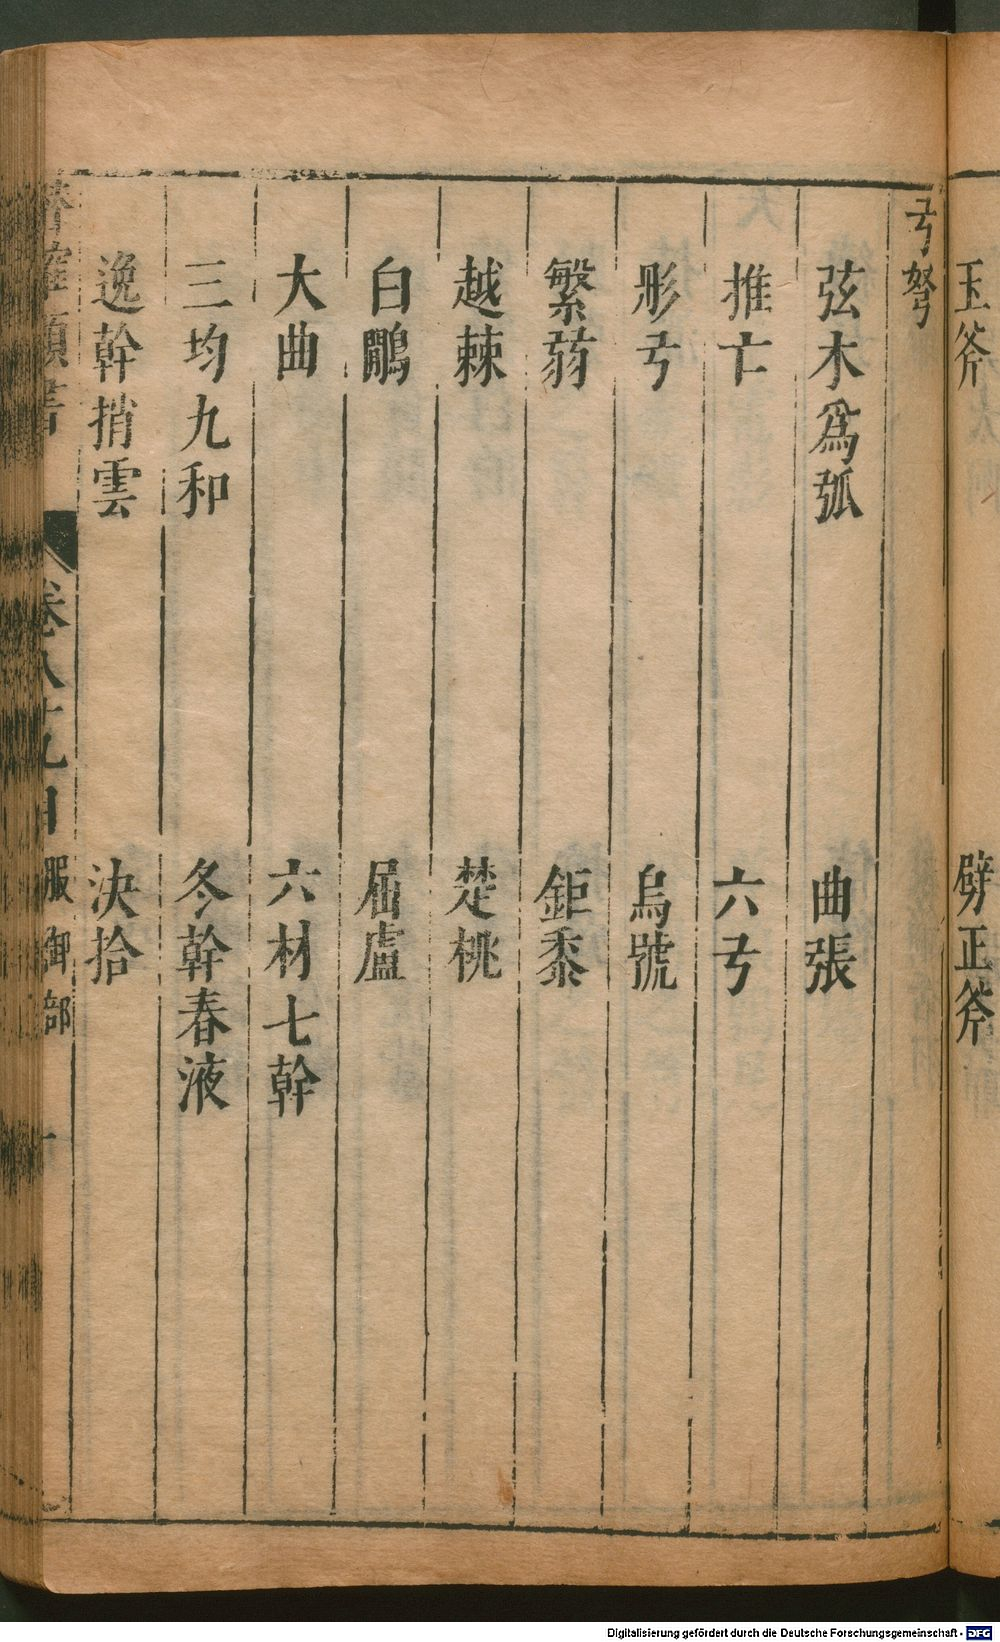 玉斧 劈正斧
弓弩
弦木為弧 曲張
推亡 六弓
彤弓 烏號
繁弱 鉅黍
越棘 楚桃
白鷴 屈盧
大曲 六材七幹
三均九和 冬幹春液
逸幹捎雲 決拾
潛確類書 卷八十九目 服御部 十
Digitalisierung gefördert durch die Deutsche Forschungsgemeinschaft - DFG